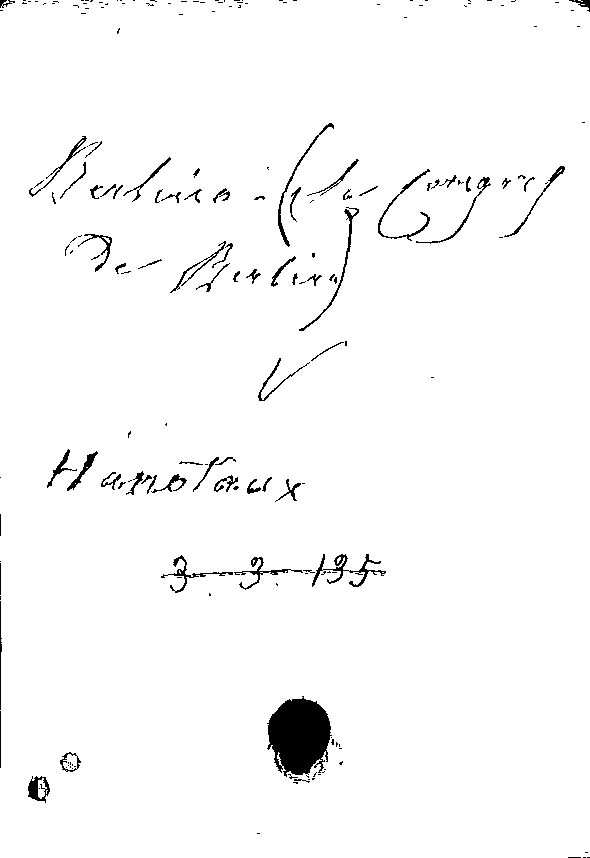 Berlino - (Le Congres
de Berlin)
V
Hanotaux
3. 3. 135